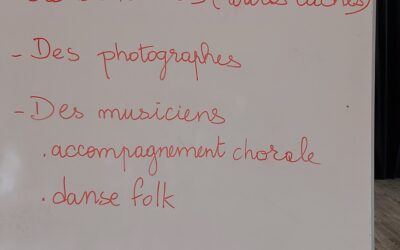 - Des photographes
- Des musiciens
. accompagnement chorale
. danse folk